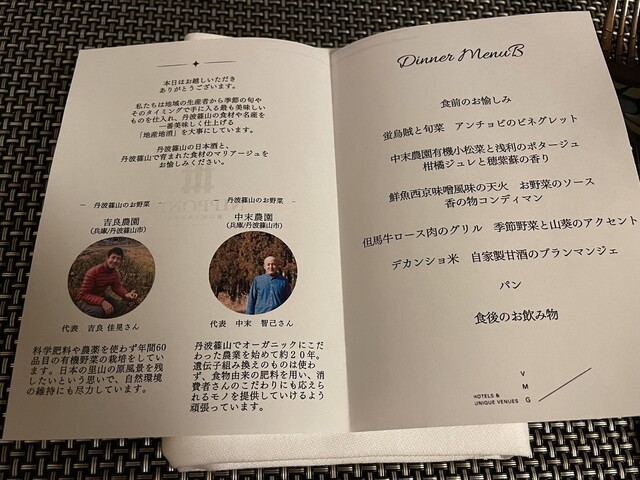 本日はお越しいただき
ありがとうございます。
私たちは地域の生産者から季節の旬や
そのタイミングで手に入る最も美味しい
ものを仕入れ、丹波篠山の食材や名産を
一番美味しく仕上げる
「地産地消」を大事にしています。
丹波篠山の日本酒と、
丹波篠山で育まれた食材のマリアージュを
お愉しみください。
− 丹波篠山のお野菜
吉良農園
(兵庫/丹波篠山市)
代表 吉良 佳晃さん
科学肥料や農薬を使わず年間60
品目の有機野菜の栽培をしてい
ます。日本の里山の原風景を残
したいという思いで、自然環境
の維持にも尽力しています。
− 丹波篠山のお野菜 −
中末農園
(兵庫/丹波篠山市)
代表 中末 智己さん
丹波篠山でオーガニックにこだ
わった農業を始めて約20年。
遺伝子組み換えのものは使わ
ず、食物由来の肥料を用い、消
費者さんのこだわりにも応えら
れるモノを提供していけるよう
頑張っています。
Dinner Menu B
食前のお愉しみ
蛍烏賊と旬菜 アンチョビのビネグレット
中末農園有機小松菜と浅利のポタージュ
柑橘ジュレと穂紫蘇の香り
鮮魚西京味噌風味の天火 お野菜のソース
香の物コンディマン
但馬牛ロース肉のグリル 季節野菜と山葵のアクセント
デカンショ米 自家製甘酒のブランマンジェ
パン
食後のお飲み物
HOTELS &
UNIQUE VENUES
V
M
G